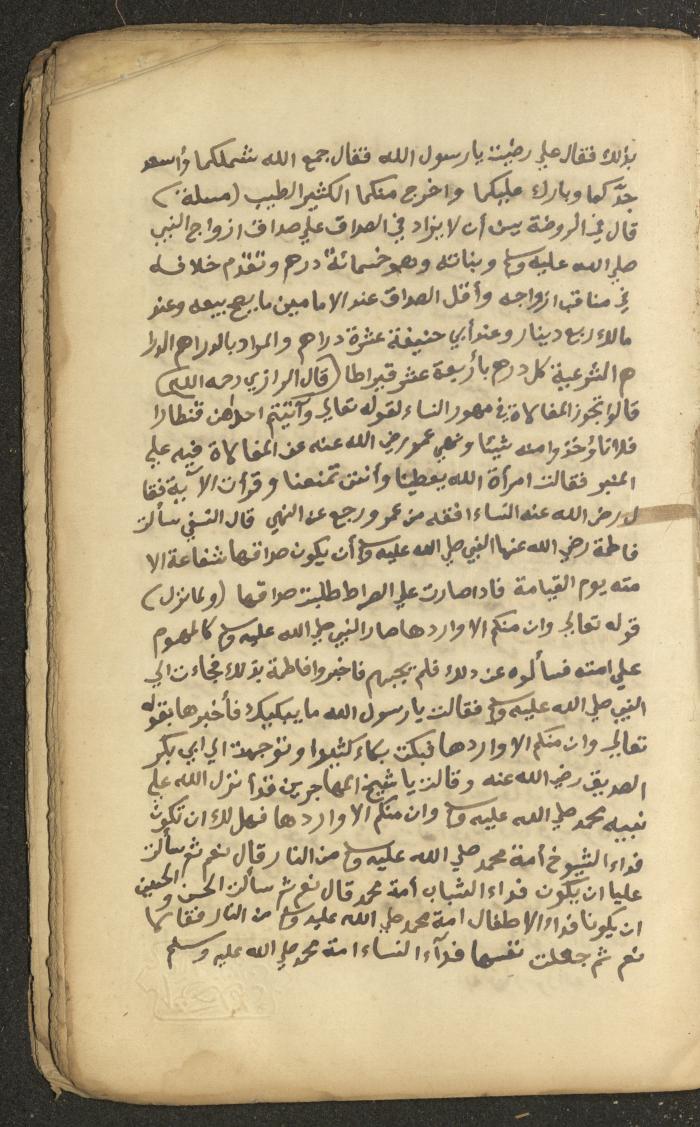 بذلك فقال علي رضيت يا رسول الله فقال جمع الله شملكما وأسعد
جدّكما وبارك عليكما واخرج منكما الكثير الطيب (مسلة)
قال في الروضة يسن أن لا يزاد في الصداق علي صداق ازواج النبي
صلي الله عليه وسلم وبناته وهو خمسمائة درهم وتقدم خلافه
في مناقب ازواجه وأقل الصداق عند الامامين ما يصح بيعه وعند
مالك ربع دينار وعند أبي حنيفة عشرة دراهم والمراد بالدراهم الدرا
هم الشرعية كل درهم بأربعة عشر قيراطا (قال الرازي رحمه الله)
قالوا تجوز المغالاة في مهور النساء لقوله تعالي وآتيتم احداهن قنطارا
فلا تاؤخذوا منه شيئا ونهي عمر رضي الله عنه عن المغالاة فيه علي
المنبر فقالت امرأة الله يعطينا وأنت تمنعنا وقرأت الآية فقا
ل رضي الله عنه النساء افقه من عمر ورجع عن النهي قال النسفي سألت
فاطمة رضي الله عنها النبي صلي الله عليه وسلم أن يكون صداقها شفاعة الا
مته يوم القيامة فاداصارت علي الصراط طلبت صداقها (ولما نزل)
قوله تعالي وان منكم الا واردها صار النبي صلي الله عليه وسلم كالمهموم
علي امته فسألوه عن ذلك فلم يجبهم فاخبروا فاطمة بذلك فجاءت الي
النبي صلي الله عليه وسلم فقالت يا رسول الله ما يبكيك فأخبرها بقوله
تعالي وان منكم الا واردها فبكت بكاء كثيرا وتوجهت الي ابي بكر
الصديق رضي الله عنه وقالت يا شيخ المهاجرين قد أنزل الله علي
نبيه محمد صلي الله عليه وسلم وان منكم الا واردها فهل لك ان تكون
فداء الشيوخ أمة محمد صلي الله عليه وسلم من النار قال نعم ثم سألت
عليا ان يكون فداء الشباب أمة محمد قال نعم ثم سألت الحسن والحسين
ان يكونا فداء الاطفال امة محمد صلي الله عليه وسلم من النار فقالا كما
نعم ثم جعلت نفسها فدآء النساء امة محمد صلي الله عليه وسلم